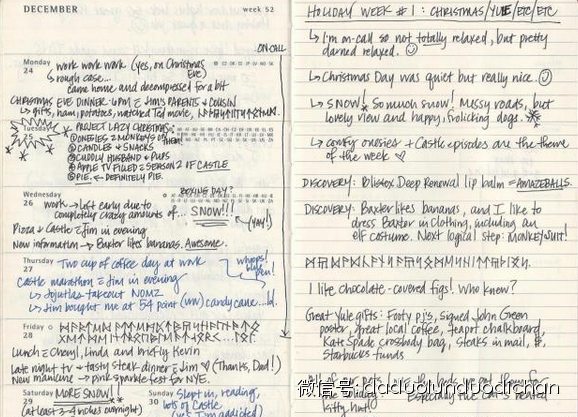 DECEMBER
week 52
ON-CALL
Monday
24
work work work (yes, on Christmas Eve)
↳ rough case...
came home and decompressed for a bit
CHRISTMAS EVE DINNER - 6PM @ JIM'S PARENTS & COUSIN
↳ gifts, ham, potatoes, watched Ted movie,
Tuesday
25
PROJECT LAZY CHRISTMAS
@ ONESIES & MONKEYS ON THEM!
@ CANDLES & SNACKS
@ CUDDLY HUSBAND & PUPS
@ APPLE TV FILLED & SEASON 2 OF CASTLE
@ PIE. ← DEFINITELY PIE.
Wednesday
26
BOXING DAY?
work → left early due to
completely crazy amounts of... SNOW!!!
(yay!)
Pizza & Castle & Jim in evening
New information → Baxter likes bananas. Awesome.
Thursday
27
Two cup of coffee day at work
whoops! blue pen!
Castle marathon & Jim in evening
↳ Jojutlas takeout NOMZ
↳ Jim bought me at 54 point (WW) candy cane...lol.
Friday
28
Lunch & Cheryl, Linda and briefly Kevin
Late night TV & tasty steak dinner & Jim ♡ (Thanks, Dad!)
New manicure → pink sparklefest for NYE.
Saturday
29
MORE SNOW!
(at least 3-4 inches overnight)
Sunday
Slept in, reading,
lots of Castle
(yes, I'm addicted)
HOLIDAY WEEK #1: CHRISTMAS/YULE/ETC/ETC
↳ I'm on-call so not totally relaxed, but pretty
darned relaxed. ☺
↳ Christmas Day was quiet but really nice. ☺
↳ SNOW! So much snow! Messy roads, but
lovely view and happy, frolicking dogs.
↳ comfy onesies + Castle episodes are the theme
of the week ♡
DISCOVERY: Blistex Deep Renewal lip balm = AMAZEBALLS.
DISCOVERY: Baxter likes bananas, and I like to
dress Baxter in clothing, including an
elf costume. Next logical step: MONKEY SUIT!
I like chocolate-covered figs! Who knew?
Great Yule gifts: Footy pj's, signed John Green
poster, great local coffee, teapot chalkboard,
Kate Spade crossbody bag, steaks in mail, $,
Starbucks funds
微信号:dadaolunduodichan